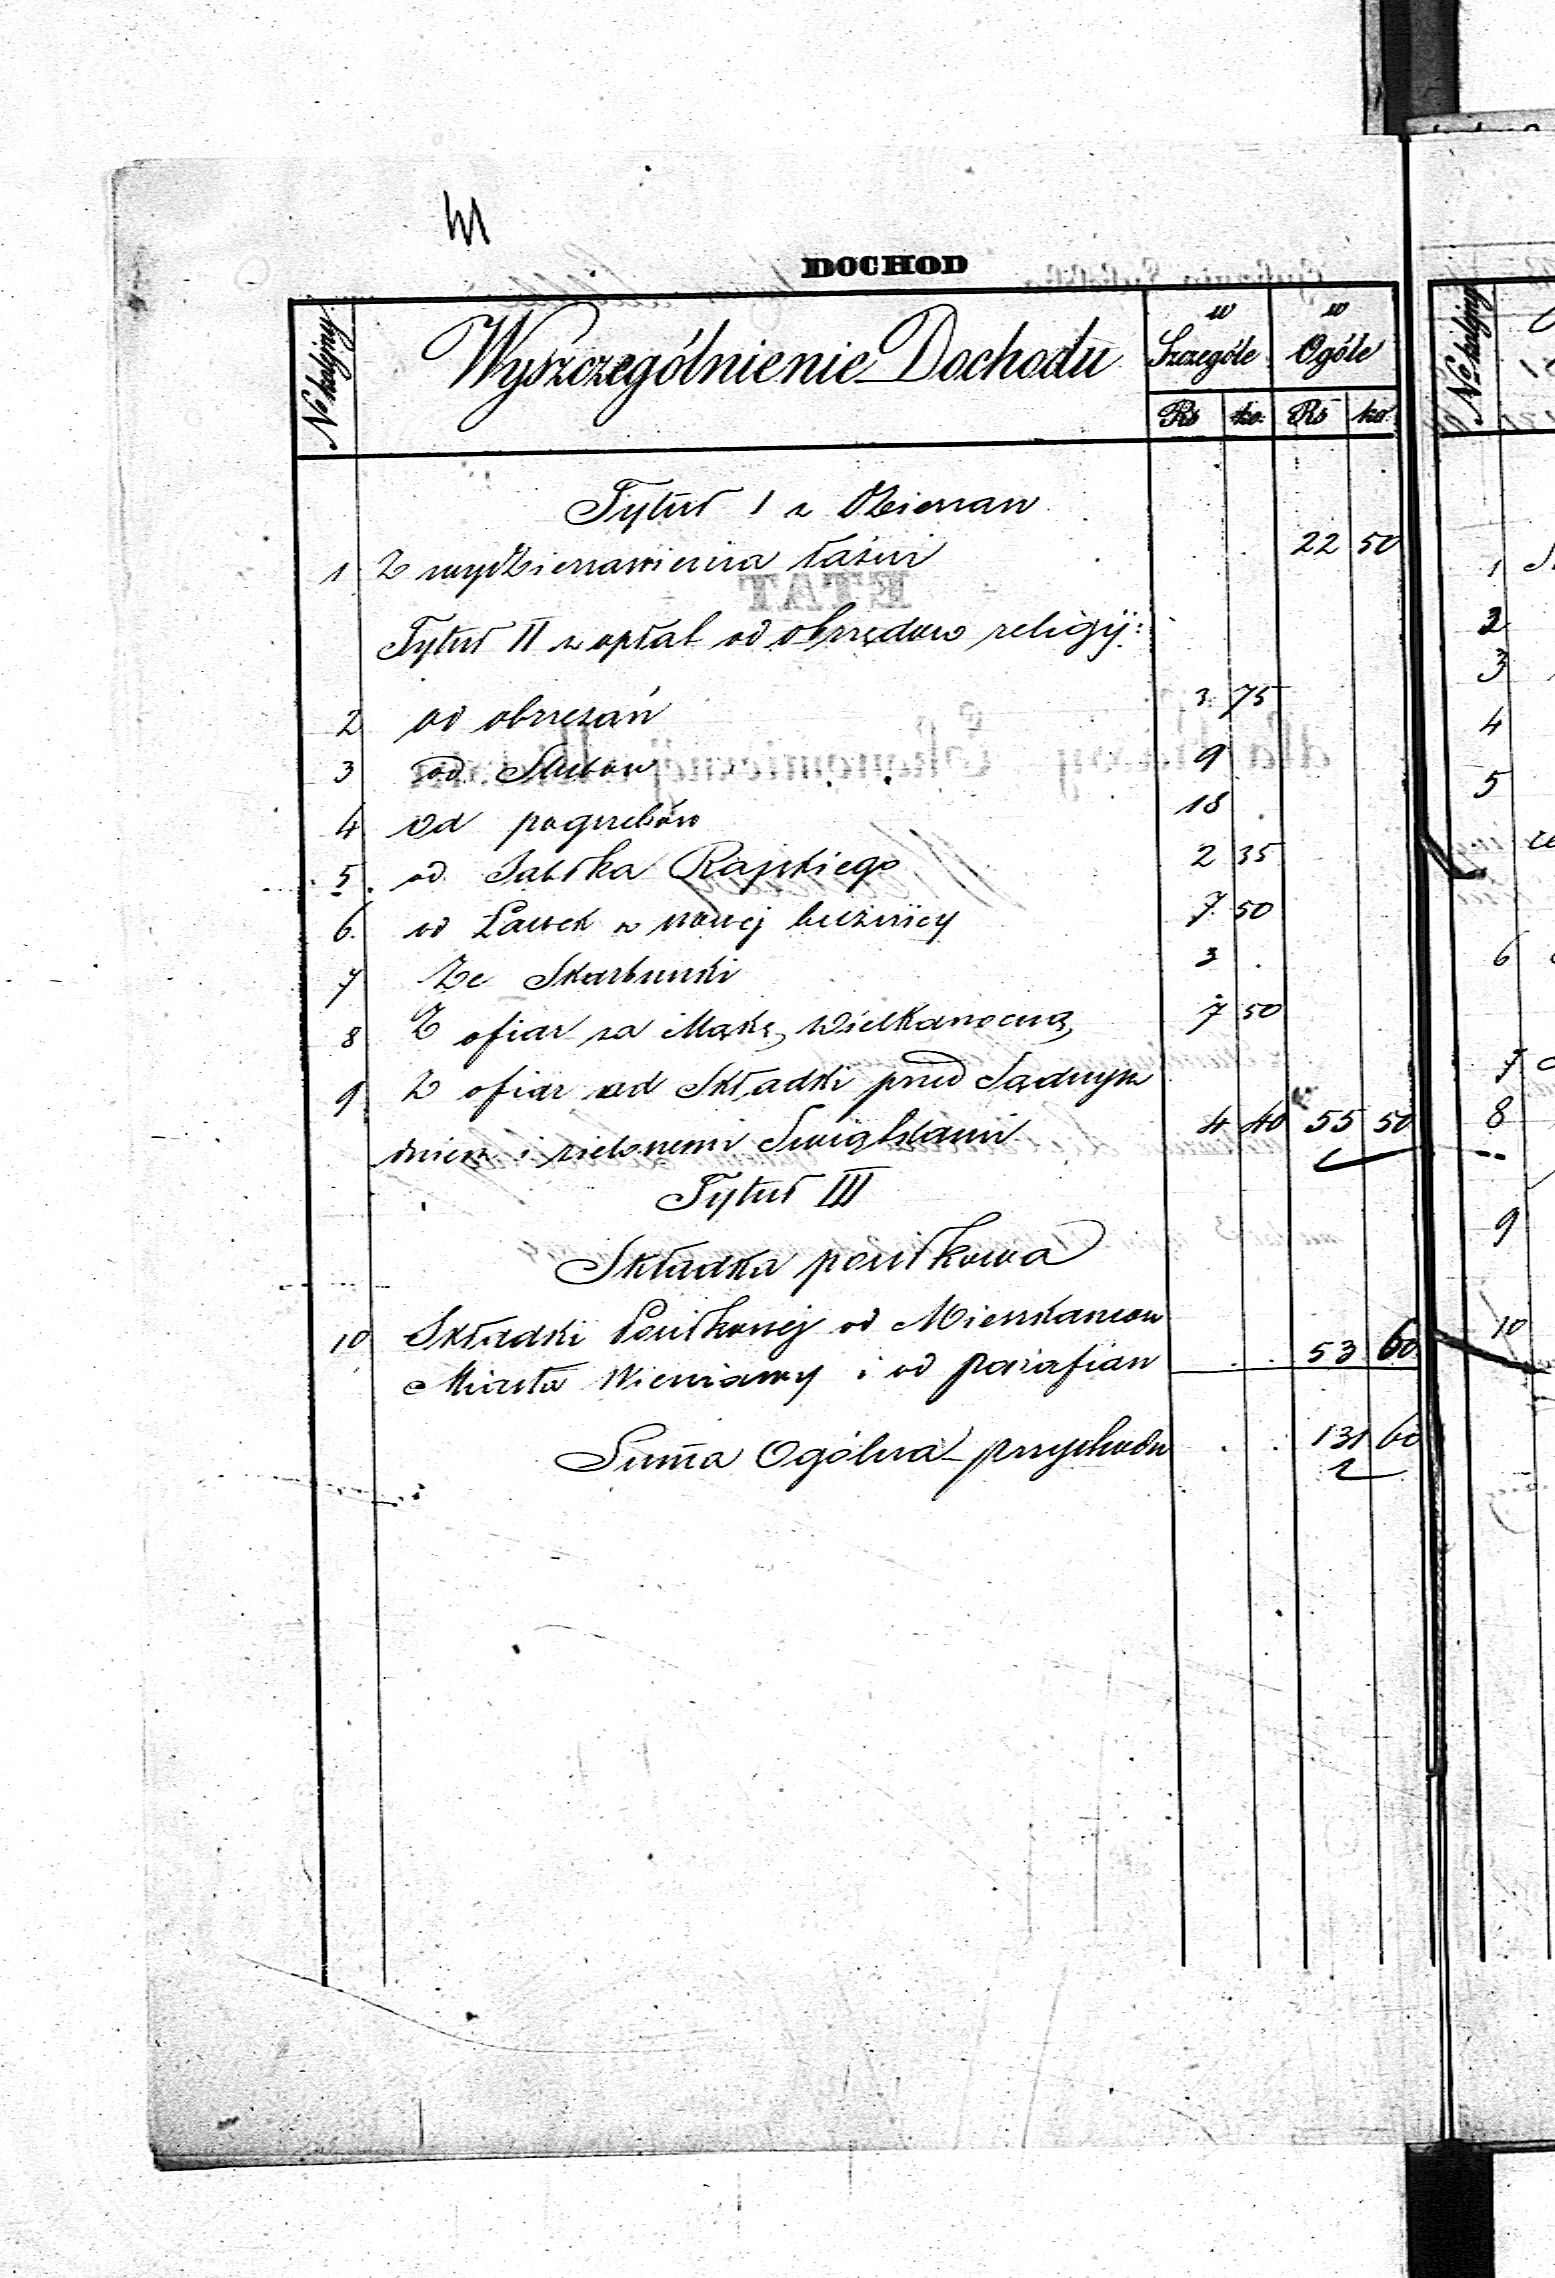 DOCHOD
No kolejny
Wyszczególnienie Dochodu
w Szczególe
w Ogóle
Rs ko: Rs ko:
Tytuł I z Dzierżaw
1 Z wydzierżawienia łaźni 22 50
Tytuł II z opłat od obrzędów religij:
2 od obrzezań 3 75
3 od Ślubow 9
4 od pogrzebów 18
5 od Jabłka Rajskiego 2 35
6 od Ławek w nowej bużnicy 7 50
7 Ze Skarbunki 3
8 Z ofiar za Mąkę Wielkanocną 7 50
9 Z ofiar od Składki przed Sądnym
dniem i zielonemi Swiątkami 4 40 55 50
Tytuł III
Składka posiłkowa
10 Składki Posiłkowej od Mieszkancow
Miasta Wieniawy i od parafian 53 60
Suma Ogólna przychodu 131 60
No kolejny
1
2
3
4
5
6
7
8
9
10